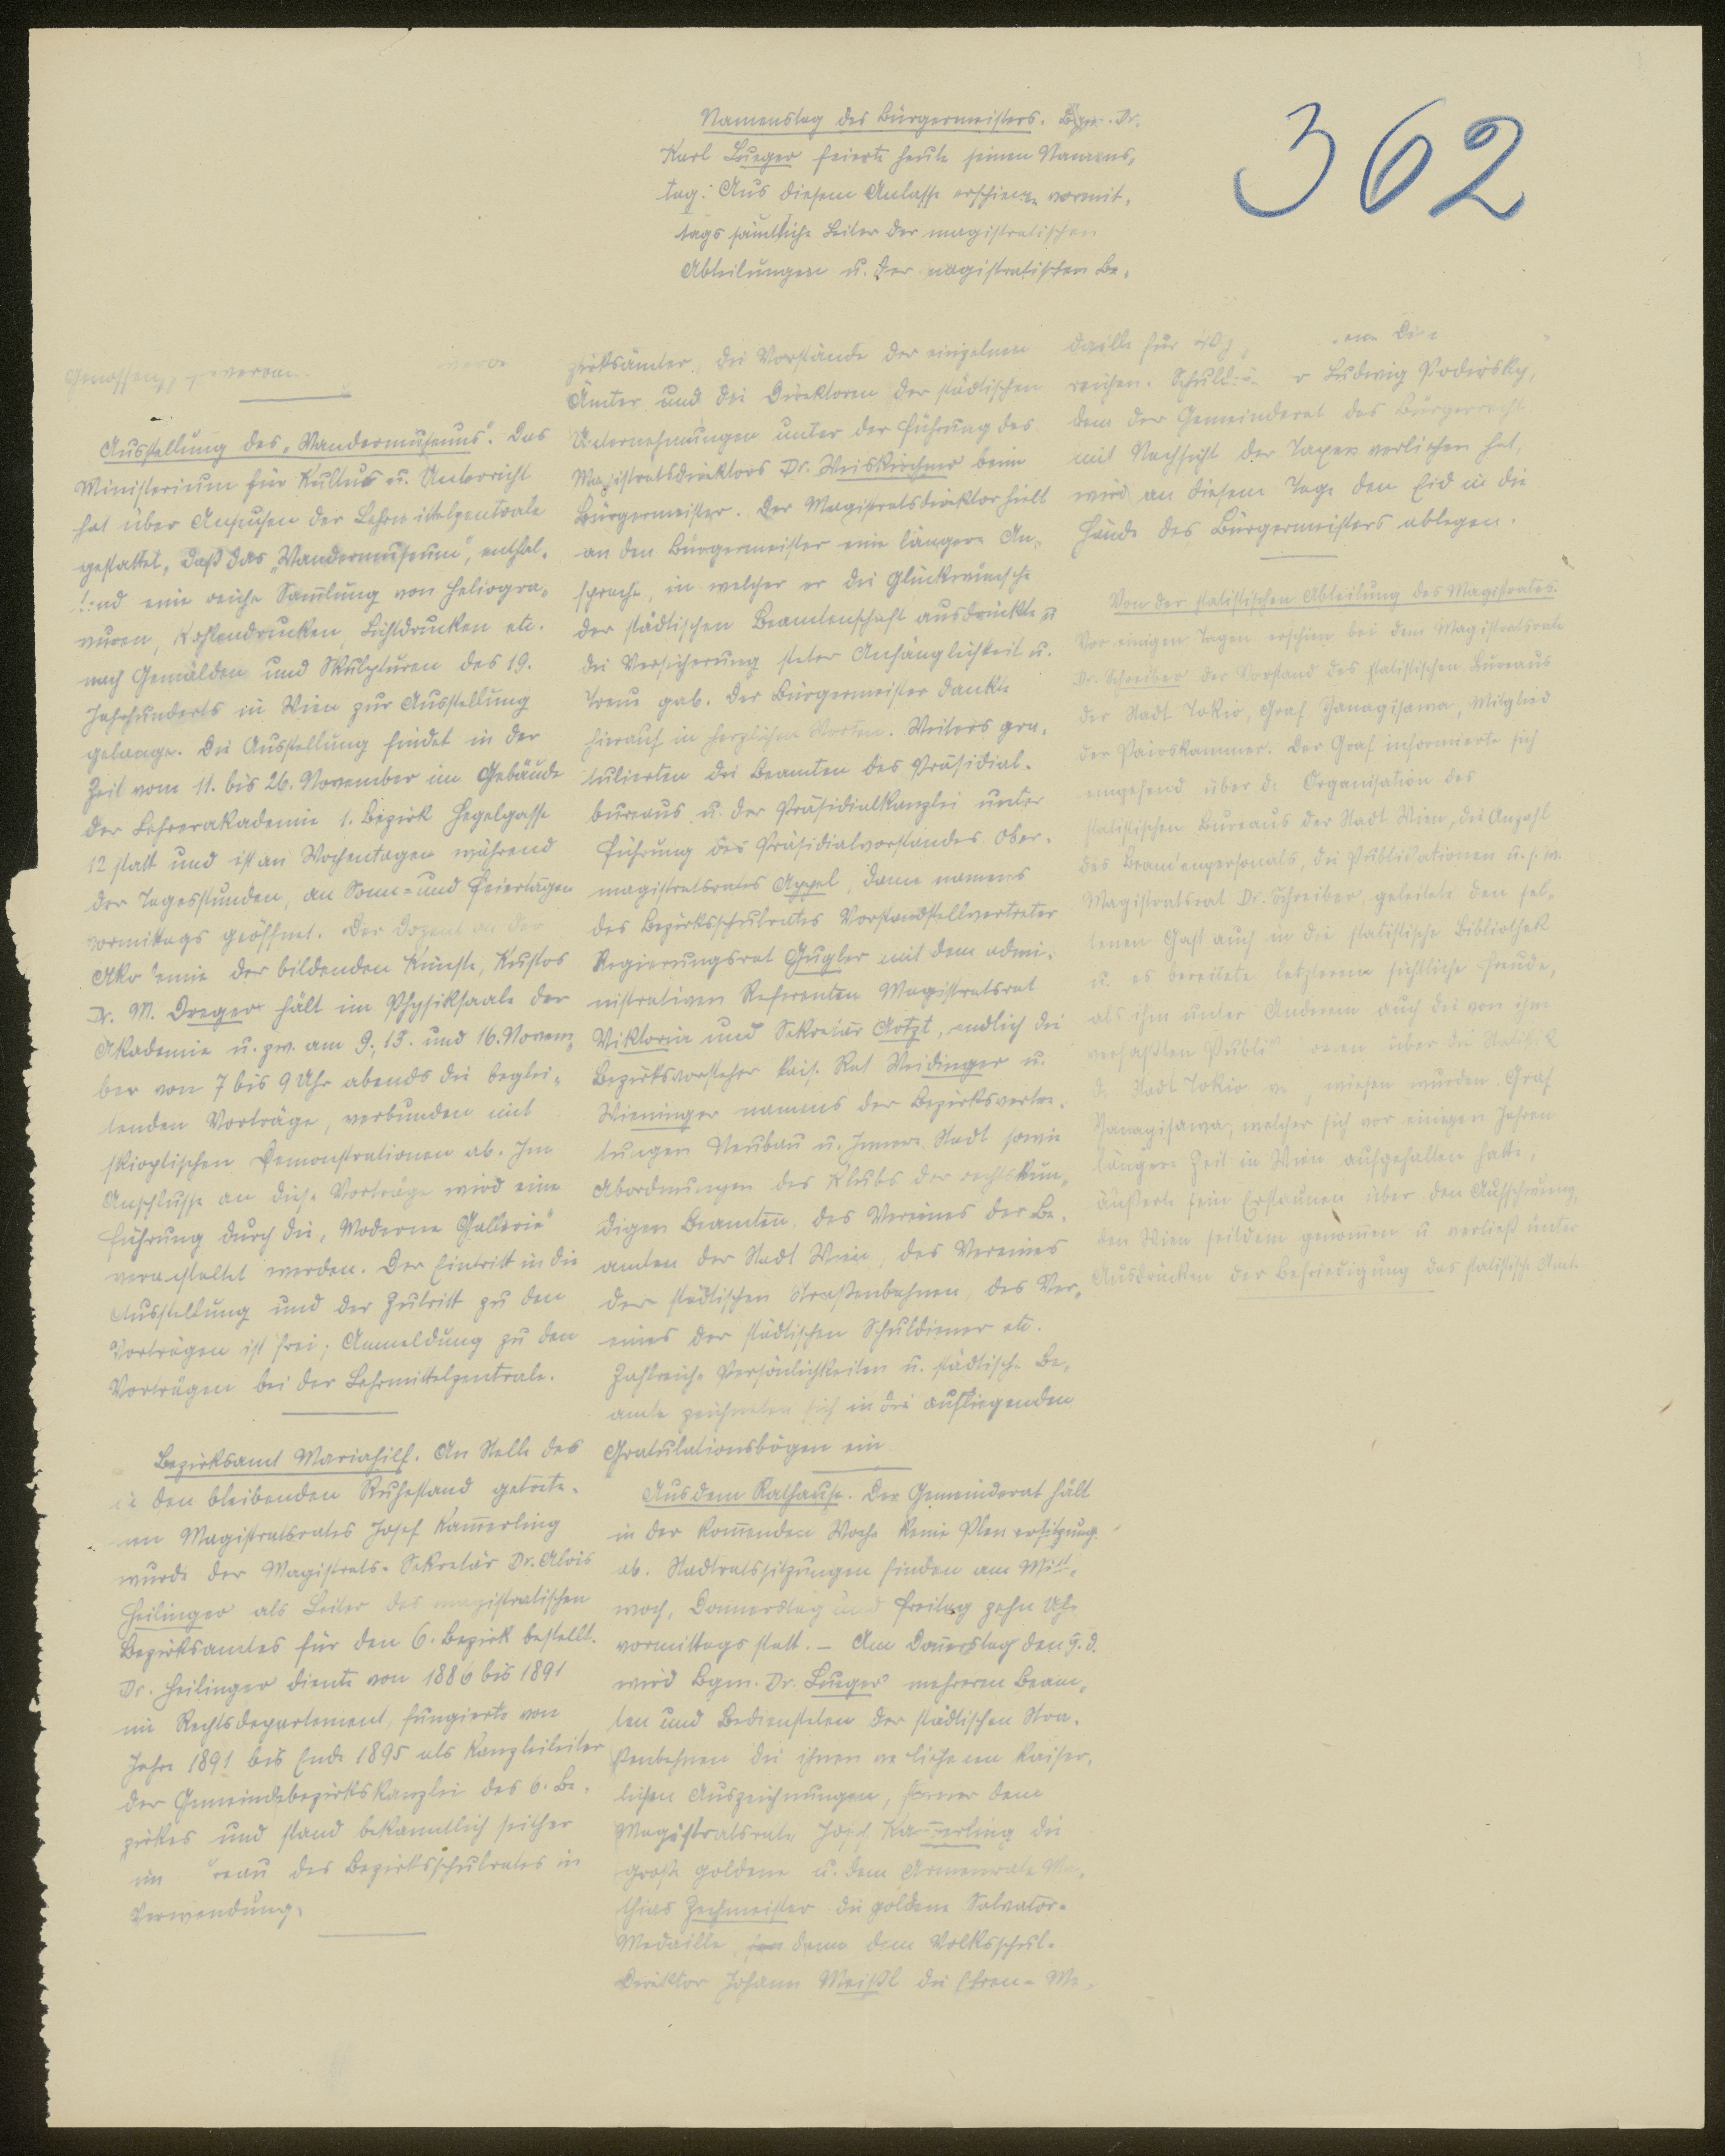 362
Genossenschaft
Ausstellung des „Wandermuseums". Das
Ministerium für Kultus u. Unterricht
hat über Ansuchen der Lehrmittelzentrale
gestattet, daß das „Wandermuseum", enthal-
tend eine reiche Sammlung von Heliogra-
vuren, Kohlendrucken, Lichtdrucken etc.
nach Gemälden und Skulpturen des 19.
Jahrhunderts in Wien zur Ausstellung
gelange. Die Ausstellung findet in der
Zeit vom 11. bis 26. November im Gebäude
der Lehrerakademie 1. Bezirk Hegelgasse
12 statt und ist an Wochentagen während
der Tagesstunden, an Sonn- und Feiertagen
vormittags geöffnet. Der Dozent an der
Akademie der bildenden Künste, Kustos
Dr. M. Dreger hält im Physiksaale der
Akademie u. zw. am 9., 13. und 16. Novem-
ber von 7 bis 9 Uhr abends die beglei-
tenden Vorträge, verbunden mit
skioptischen Demonstrationen ab. Im
Anschlusse an diese Vorträge wird eine
Führung durch die „Moderne Gallerie"
veranstaltet werden. Der Eintritt in die
Ausstellung und der Zutritt zu den
Vorträgen ist frei; Anmeldung zu den
Vorträgen bei der Lehrmittelzentrale.
Bezirksamt Mariahilf. An Stelle des
in den bleibenden Ruhestand getrete-
nen Magistratsrates Josef Kam̅erling
wurde der Magistrats-Sekretär Dr. Alois
Heilinger als Leiter des magistratischen
Bezirksamtes für den 6. Bezirk bestellt.
Dr. Heilinger diente von 1886 bis 1891
im Rechtsdepartement, fungierte vom
Jahre 1891 bis Ende 1895 als Kanzleileiter
der Gemeindebezirkskanzlei des 6. Be-
zirkes und stand bekanntlich seither
im Bureau des Bezirksschulrates in
Verwendung.
Namenstag des Bürgermeisters. Bgm. Dr.
Karl Lueger feierte heute seinen Namens-
tag. Aus diesem Anlasse erschienen vormit-
tags sämtliche Leiter der magistratischen
Abteilungen u. der magistratischen Be-
zirksämter, die Vorstände der einzelnen
Ämter und die Direktoren der städtischen
Unternehmungen unter der Führung des
Magistratsdirektors Dr. Weiskirchner beim
Bürgermeister. Der Magistratsdirektor hielt
an den Bürgermeister eine längere An-
sprache, in welcher er die Glückwünsche
der städtischen Beamtenschaft ausdrückte u.
die Versicherung steter Anhänglichkeit u.
Treue gab. Der Bürgermeister dankte
hierauf in herzlichen Worten. Weiters gra-
tulierten die Beamten des Präsidial-
bureaus u. der Präsidialkanzlei unter
Führung des Präsidialvorstandes Ober-
magistratsrates Appel, dann namens
des Bezirksschulrates Vorstandstellvertreter
Regierungsrat Gugler mit dem admi-
nistrativen Referenten Magistratsrat
Viktorin und Sekretär Artzt, endlich die
Bezirksvorsteher kais. Rat Weidinger u.
Wieninger namens der Bezirksvertre-
tungen Neubau u. Innere Stadt sowie
Abordnungen des Klubs der rechtskun-
digen Beamten, des Vereines der Be-
amten der Stadt Wien, des Vereines
der städtischen Straßenbahnen, des Ver-
eines der städtischen Schuldiener etc.
Zahlreiche Persönlichkeiten u. städtische Be-
amte zeichneten sich in die aufliegenden
Gratulationsbögen ein.
Aus dem Rathause. Der Gemeinderat hält
in der kom̅enden Woche keine Plenarsitzung
ab. Stadtratssitzungen finden am Mitt-
woch, Donnerstag und Freitag zehn Uhr
vormittags statt. – Am Don̅erstag den 9. d.
wird Bgm. Dr. Lueger mehreren Beam-
ten und Bediensteten der städtischen Stra-
ßenbahnen die ihnen verliehenen kaiser-
lichen Auszeichnungen, ferner dem
Magistratsrate Josef Kam̅erling die
große goldene u. dem Armenrate Ma-
thias Zechmeister die goldene Salvator-
Medaille, dann dem Volksschul-
Direktor Johann Meißl die Ehren-Me-
daille für
reichen. Ludwig Podirsky,
dem der Gemeinderat das Bürgerrecht
mit Nachsicht der Taxen verliehen hat,
wird an diesem Tage den Eid in die
Hände des Bürgermeisters ablegen.
Von der statistischen Abteilung des Magistrates.
Vor einigen Tagen erschien bei dem Magistratsrate
Dr. Schreiber der Vorstand des statistischen Bureaus
der Stadt Tokio, Graf Yanagisawa, Mitglied
der Pairskammer. Der Graf informierte sich
eingehend über die Organisation des
statistischen Bureaus der Stadt Wien, die Anzahl
des Beamtenpersonals, die Publikationen u. s. w.
Magistratsrat Dr. Schreiber, geleitete den sel-
tenen Gast auch in die statistische Bibliothek
u. es bereitete letzterem sichtliche Freude,
als ihm unter Anderem auch die von ihm
verfaßten Publikationen über die Statistik
der Stadt Tokio gewiesen wurden. Graf
Yanagisawa, welcher sich vor einigen Jahren
längere Zeit in Wien aufgehalten hatte,
äußerte sein Erstaunen über den Aufschwung,
den Wien seitdem genom̅en u. verließ unter
Ausdrücken der Befriedigung das statistische Amt.